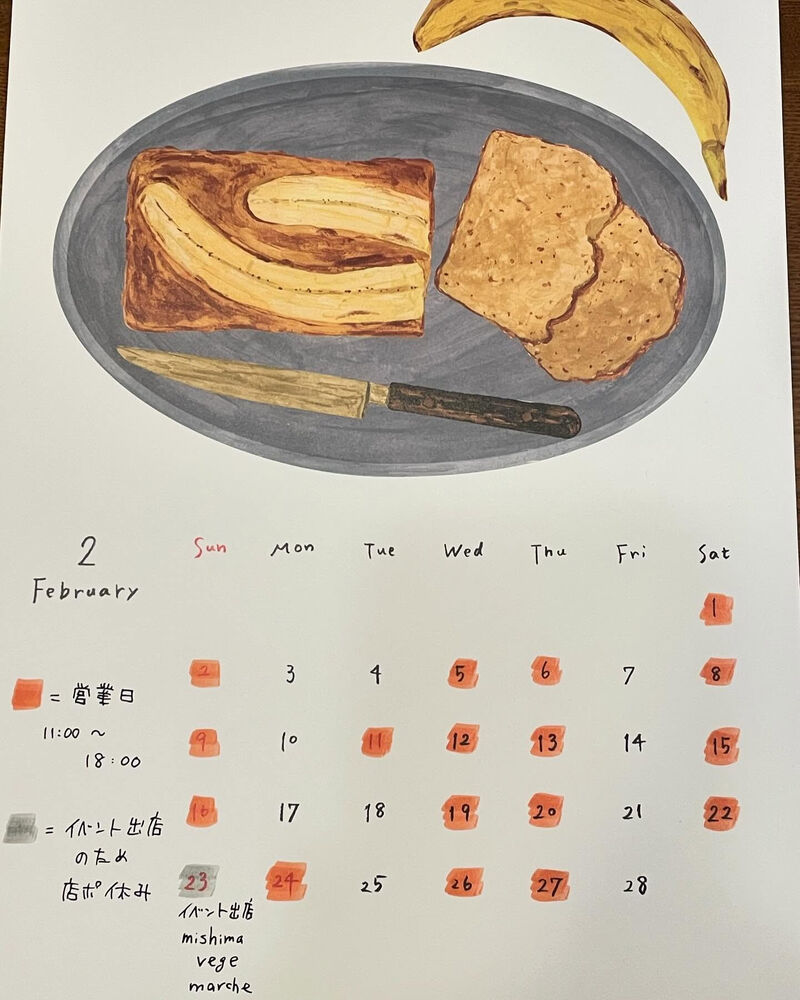 2
February
Sun Mon Tue Wed Thu Fri Sat
1
2 3 4 5 6 7 8
9 10 11 12 13 14 15
16 17 18 19 20 21 22
23 24 25 26 27 28
イベント出店
mishima
vege
marche
= 営業日
11:00 〜
18:00
= イベント出店
のため
店ポ休み